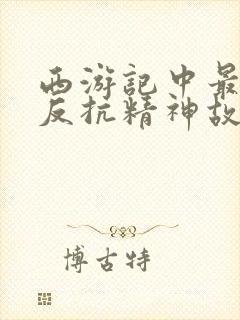 西游記中最
反抗精神故
博古特